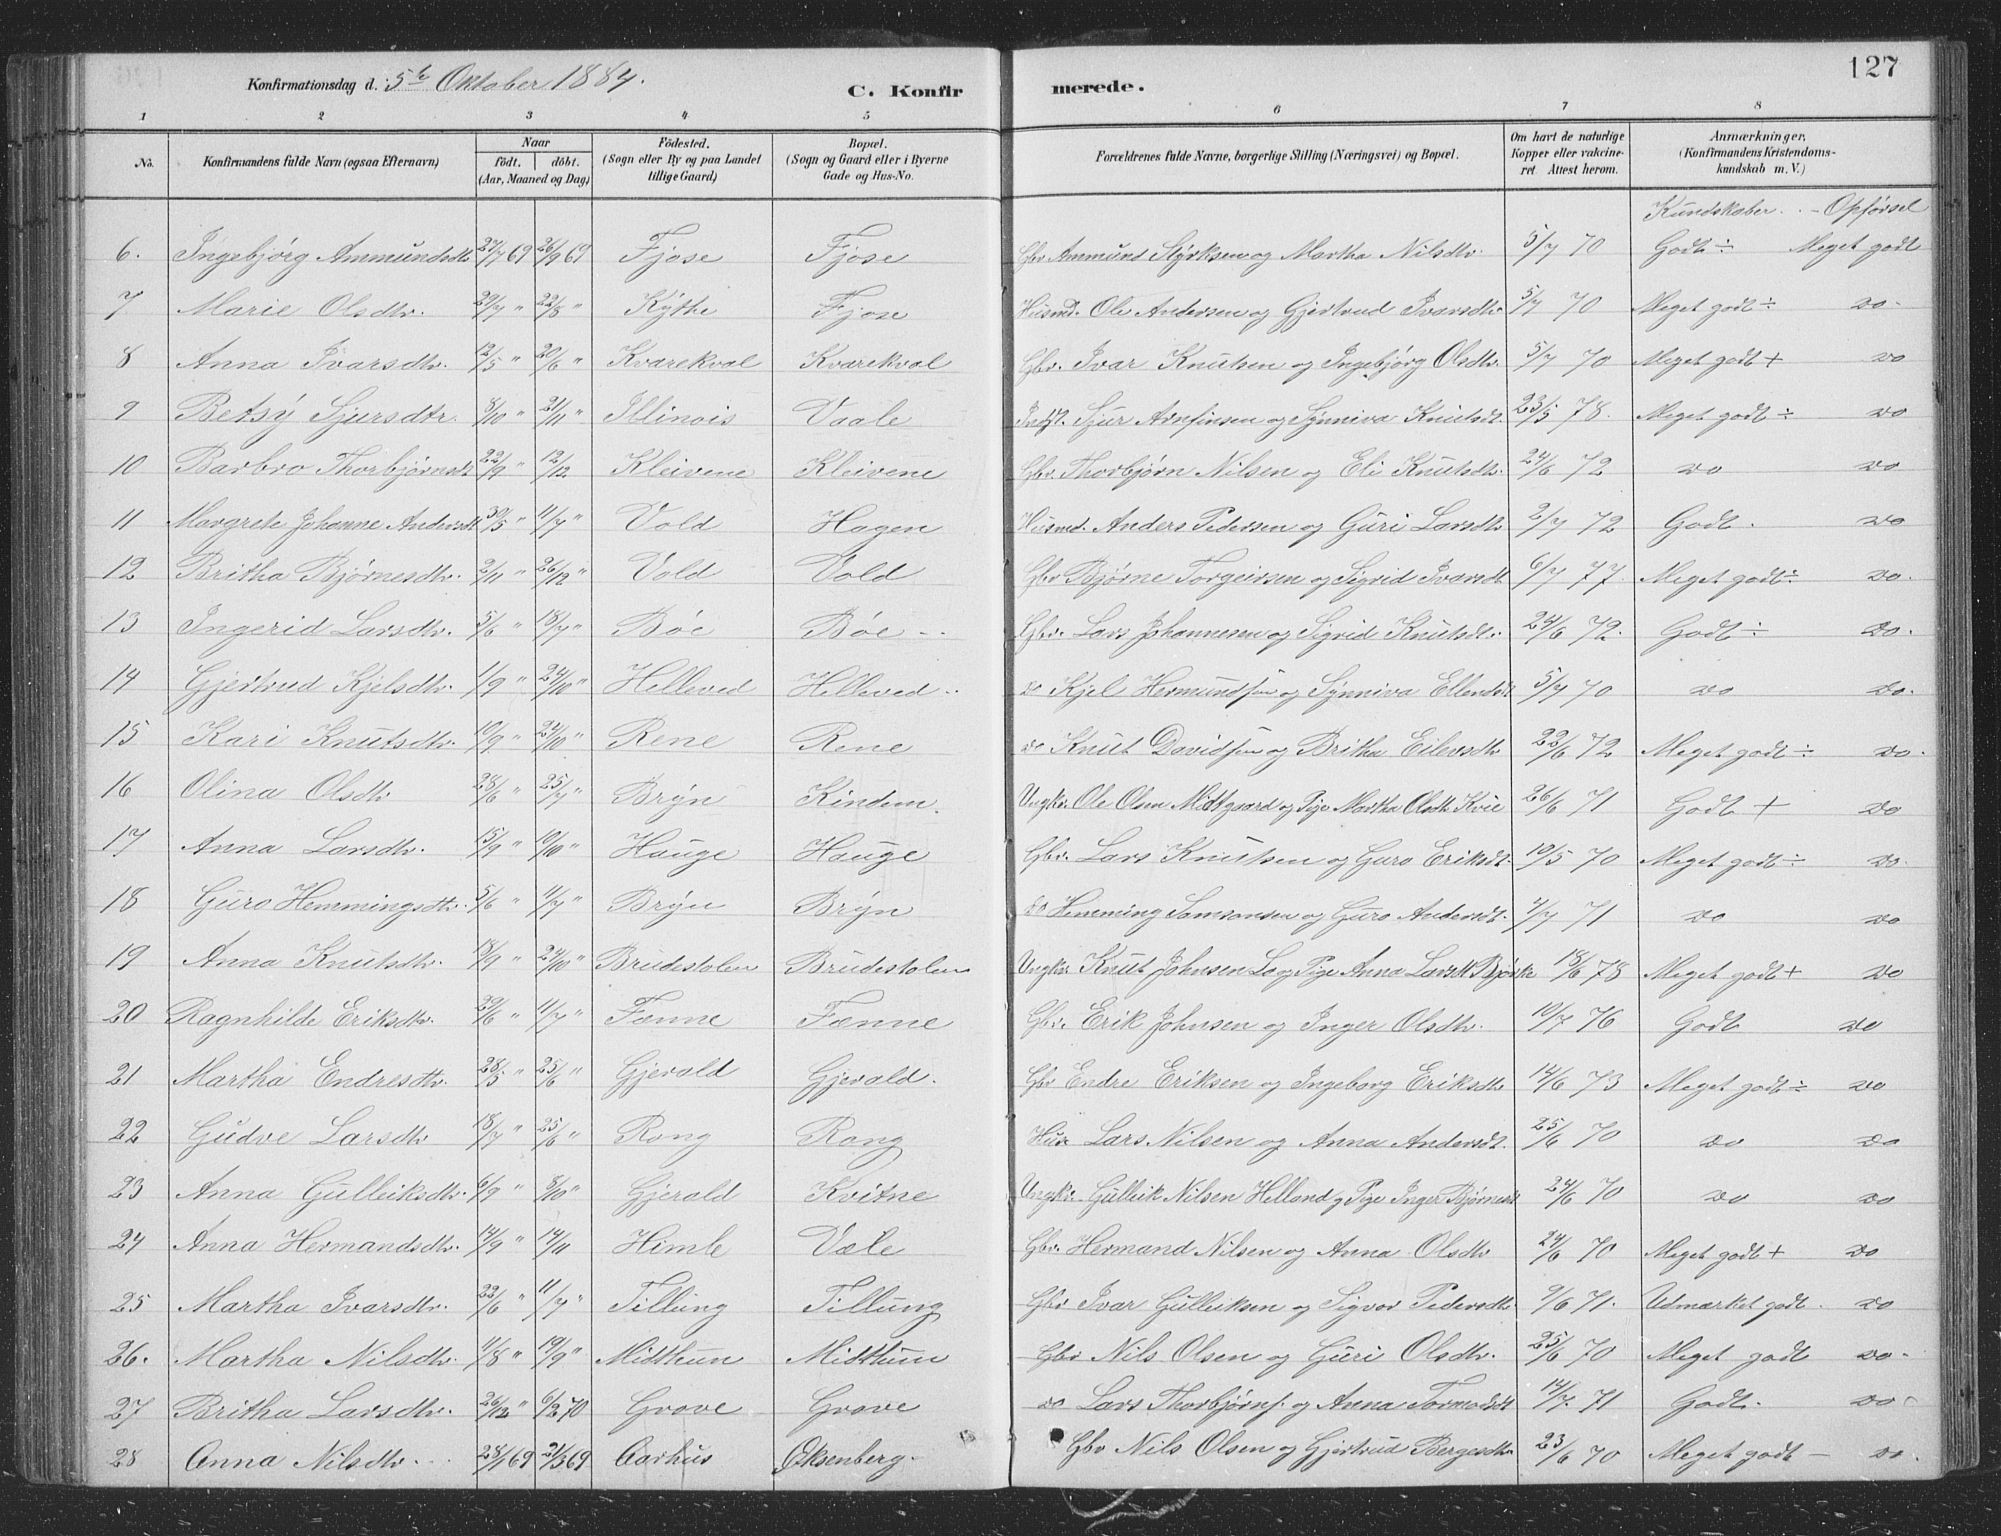 127
Konfirmationsdag d. 5te Oktober 1884.
C. Konfirmerede.
1 2 3 4 5 6 7 8
No. Konfirmandens fulde Navn (ogsaa Efternavn) Naar födt. döbt. (Aar, Maaned og Dag) Födested. (Sogn eller By og paa Landet tillige Gaard) Bopæl. (Sogn og Gaard eller i Byerne Gade og Hus-No. Forældrenes fulde Navne, borgerlige Stilling (Næringsvei) og Bopæl. Om havt de naturlige Kopper eller vakcineret. Attest herom. Anmærkninger, (Konfirmandens Kristendomskundskab m. V.)
Kundskaber. - Opførsel
6. Ingebjørg Ammundsdtr 27/7 69 26/9 69 Fjose Fjose Gbr. Ammund Styrksen og Martha Nilsdtr. 5/7 70 Godt ÷ Meget godt
7 Marie Olsdtr. 29/7 " 22/8 " Kythe Fjose Husmd. Ole Andersen og Gjertrud Ivarsdtr. 5/7 70 Meget godt ÷ do
8 Anna Ivarsdtr. 12/5 " 20/6 " Kvarekval Kvarekval Gbr. Ivar Knutsen og Ingebjørg Olsdtr. 5/7 70 Meget godt + do
9 Betsy Sjursdtr. 8/10 " 21/11 " Illinois Vaale Indst. Sjur Arnfinsen og Synniva Knutsdt. 23/5 78. Meget godt ÷ do
10 Barbro Thorbjørnsdt 22/9 " 12/12 Kleivene Kleivene Gbr. Thorbjørn Nilsen og Eli Knutsdtr. 24/6 72 do do
11 Margrete Johanne Andersdt 30/5 " 11/7 " Vold Hagen Husmd. Anders Pedersen og Guri Larsdtr 2/7 72 Godt. do
12 Britha Bjørnesdtr. 2/11 " 26/12 " Vold Vold Gbr Bjørne Torgeirsen og Sigrid Ivarsdt 6/7 77. Meget godt ÷ do.
13 Ingerid Larsdtr. 5/6 " 18/7 " Bøe Bøe Gbr. Lars Johannesen og Sigrid Knutsdt. 24/6 72. Godt ÷ do.
14 Gjertrud Kjelsdtr. 1/9 " 24/10 " Helleved Helleved do Kjel Hermundsen og Synniva Ellendsdt 5/7 70 do do.
15 Kari Knutsdtr. 10/9 " 24/10 " Rene Rene do Knut Davidsen og Britha Eilevsdtr 22/6 72 Meget godt ÷ do.
16 Olina Olsdtr 28/6 " 25/7 " Bryn Kindem. Ungkr. Ole Olsen Midtgaard og Pige Martha Olsdtr Kvie 26/6 71 Godt + do
17 Anna Larsdtr. 15/9 " 10/10 " Hauge Hauge Gbr. Lars Knutsen og Guro Eriksdt. 10/5 70 Meget godt ÷ do.
18 Guro Hemmingsdtr. 5/6 " 4/7 " Bryn Bryn do Hemming Samsonsen og Guro Andersdt. 4/7 71 do do
19 Anna Knutsdtr. 18/9 " 24/10 " Brudestolen Brudestolen Ungkr Knut Johnsen og Pige Anna Larsdt Bjørke 18/6 78 Meget godt + do
20 Ragnhilde Eriksdtr. 29/6 " 11/7 " Fænne Fænne Gbr. Erik Johnsen og Inger Olsdtr. 10/7 76 Godt do
21 Martha Endresdtr. 28/5 " 25/6 " Gjerald Gjerald. Gbr Endre Eriksen og Ingeborg Eriksdtr 14/6 73 Meget godt ÷ do
22 Gudve Larsdtr 18/7 " 25/6 " Rong Rong Hus. Lars Nilsen og Anna Andersdt. 25/6 70 do do
23 Anna Gulleiksdtr. 6/9 " 8/10 " Gjerald Kvitne Ungkr. Gulleik Nilsen Helland og Pige Inger Bjørnesdt 24/6 70 do do
24 Anna Hermandsdtr. 14/9 " 14/11 Himle Væle Gbr. Hermand Nilsen og Anna Olsdtr 24/6 70 Meget godt + do
25 Martha Ivarsdtr. 22/6 " 11/7 " Tillung Tillung Gbr Ivar Gulleiksen og Sigvor Pedersdtr. 9/6 71. Udmærket godt. do
26. Martha Nilsdtr. 4/8 " 19/9 " Midthun Midthun Gbr Nils Olsen og Guri Olsdtr. 25/6 70 Meget godt do.
27 Britha Larsdtr. 26/12 " 6/2 70 Grove Grove do Lars Thorbjørns. og Anna Tormodsdt 14/7. 71 Godt. do
28 Anna Nilsdtr. 28/1 69 21/3 69 Aarhus Øksenberg. Gbr Nils Olsen og Gjertrud Bergesdtr. 23/6 70 Meget godt - do.